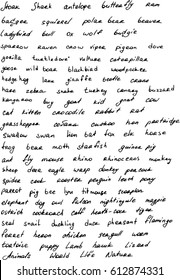 Swan Shark antelope butterfly ram
badger squirrel polar bear beaver
Ladybird bull ox wolf budgie
sparrow raven crow viper pigeon dove
gorilla turtledove vulture caterpillar
goose wild boar blackbird woodpecker
hedgehog lama giraffe beetle cow
hare zebra snake turkey canary buzzard
kangaroo buy goat kid goat cow
cat kitten crocodile rabbit red
grasshopper chicken cuckoo hen partridge
swallow swan lion bat fox elk horse
frog bear moth starfish guinea pig
ant fly mouse rhino rhinoceros monkey
sheep deer eagle wasp donkey peacock
spider cock rooster penguin leopard pony
parrot pig bee lynx titmouse scorpion
elephant dog owl falcon nightingale magpie
ostrich cockroach calf hart-worm tiger
seal snail duckling duck pheasant flamingo
ferret heron chicken seagull worm
tortoise puppy Lamb hawk Lizard
Animals World Life Nature
612874331